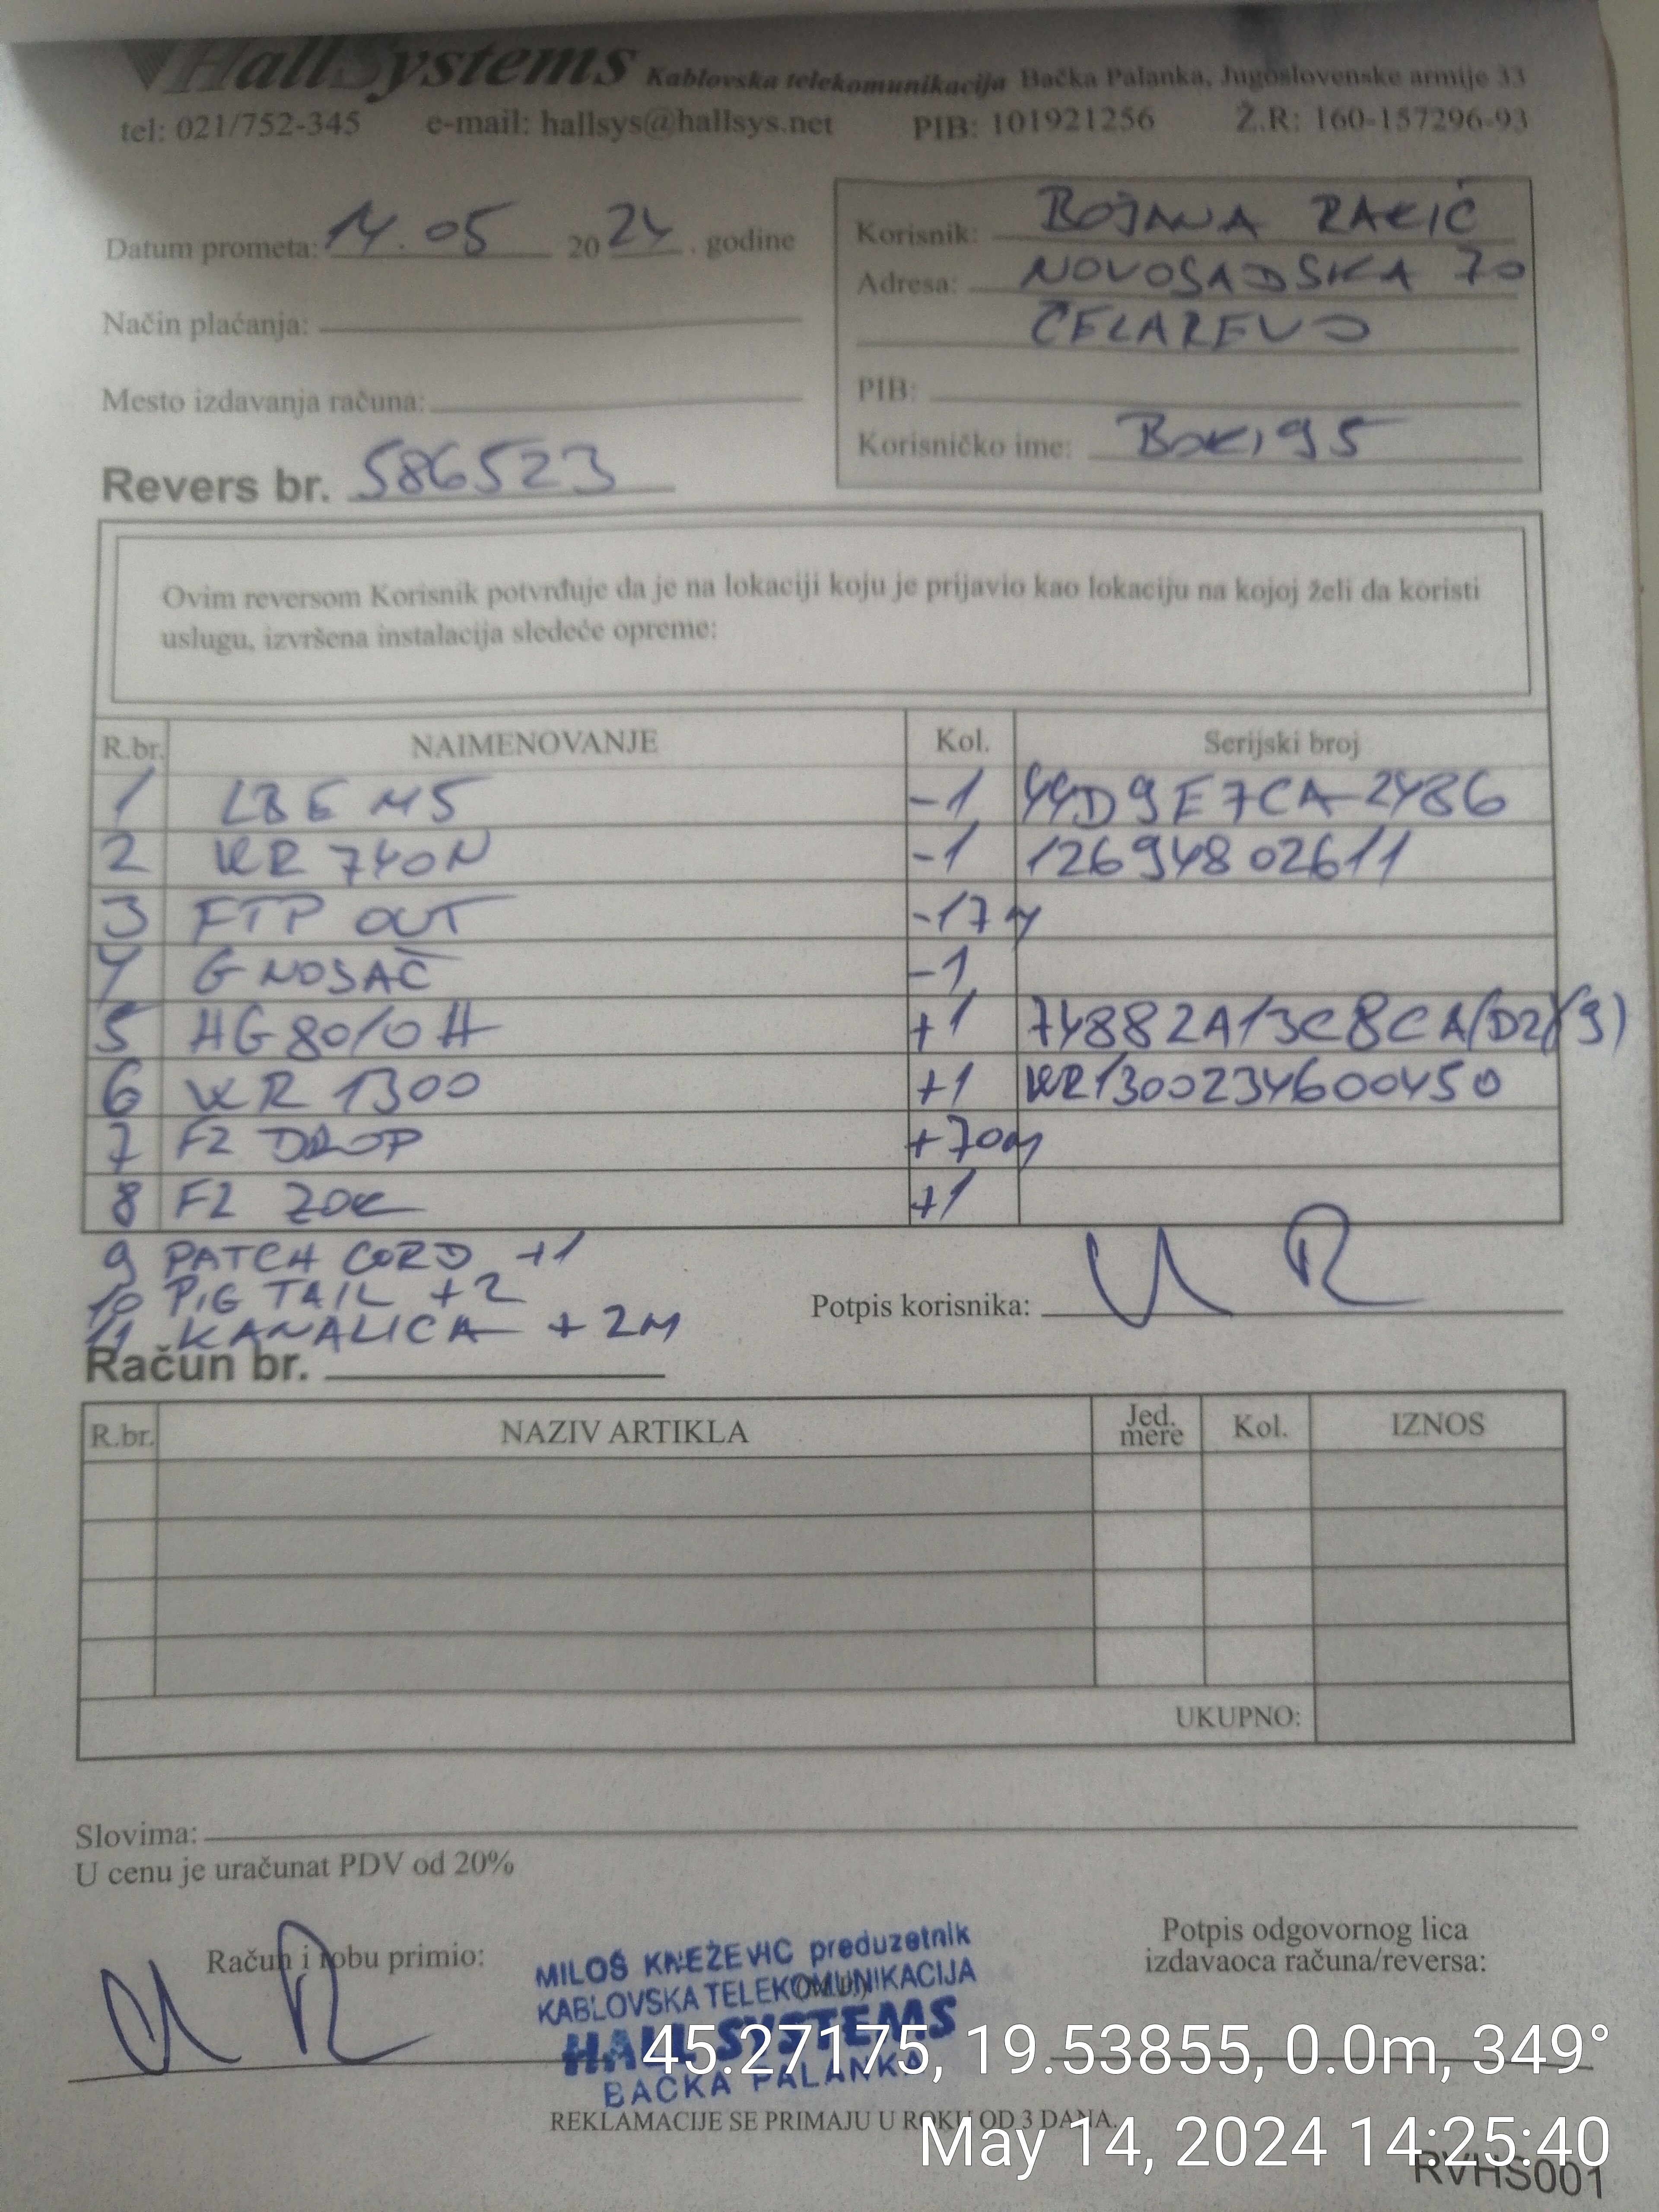 HallSystems Kablovska telekomunikacija Bačka Palanka, Jugoslovenske armije 33
tel: 021/752-345 e-mail: hallsys@hallsys.net PIB: 101921256 Ž.R: 160-157296-93
Datum prometa: 14.05 2024. godine
Način plaćanja:
Mesto izdavanja računa:
Revers br. 586523
Korisnik: BOJANA RAKIĆ
Adresa: NOVOSADSKA 70
ČELAREVO
PIB:
Korisničko ime: Boki95
Ovim reversom Korisnik potvrđuje da je na lokaciji koju je prijavio kao lokaciju na kojoj želi da koristi
uslugu, izvršena instalacija sledeće opreme:
R.br. NAIMENOVANJE Kol. Serijski broj
1 LBE M5 -1 44D9E7CA2486
2 WR 740N -1 12694802611
3 FTP OUT -17m
4 G NOSAČ -1
5 HG8010H +1 74882A13C8CA(D2)(9)
6 WR 1300 +1 WR1300234600450
7 F2 DROP +70m
8 F2 ZOK +1
9 PATCH CORD +1
10 PIG TAIL +2
11 KANALICA +2M
Potpis korisnika:
Račun br.
R.br. NAZIV ARTIKLA Jed. mere Kol. IZNOS
UKUPNO:
Slovima:
U cenu je uračunat PDV od 20%
Račun i robu primio:
MILOŠ KNEŽEVIĆ preduzetnik
KABLOVSKA TELEKOMUNIKACIJA
HALL SYSTEMS
BAČKA PALANKA
Potpis odgovornog lica
izdavaoca računa/reversa:
45.27175, 19.53855, 0.0m, 349°
REKLAMACIJE SE PRIMAJU U ROKU OD 3 DANA.
May 14, 2024 14:25:40
RVHS001